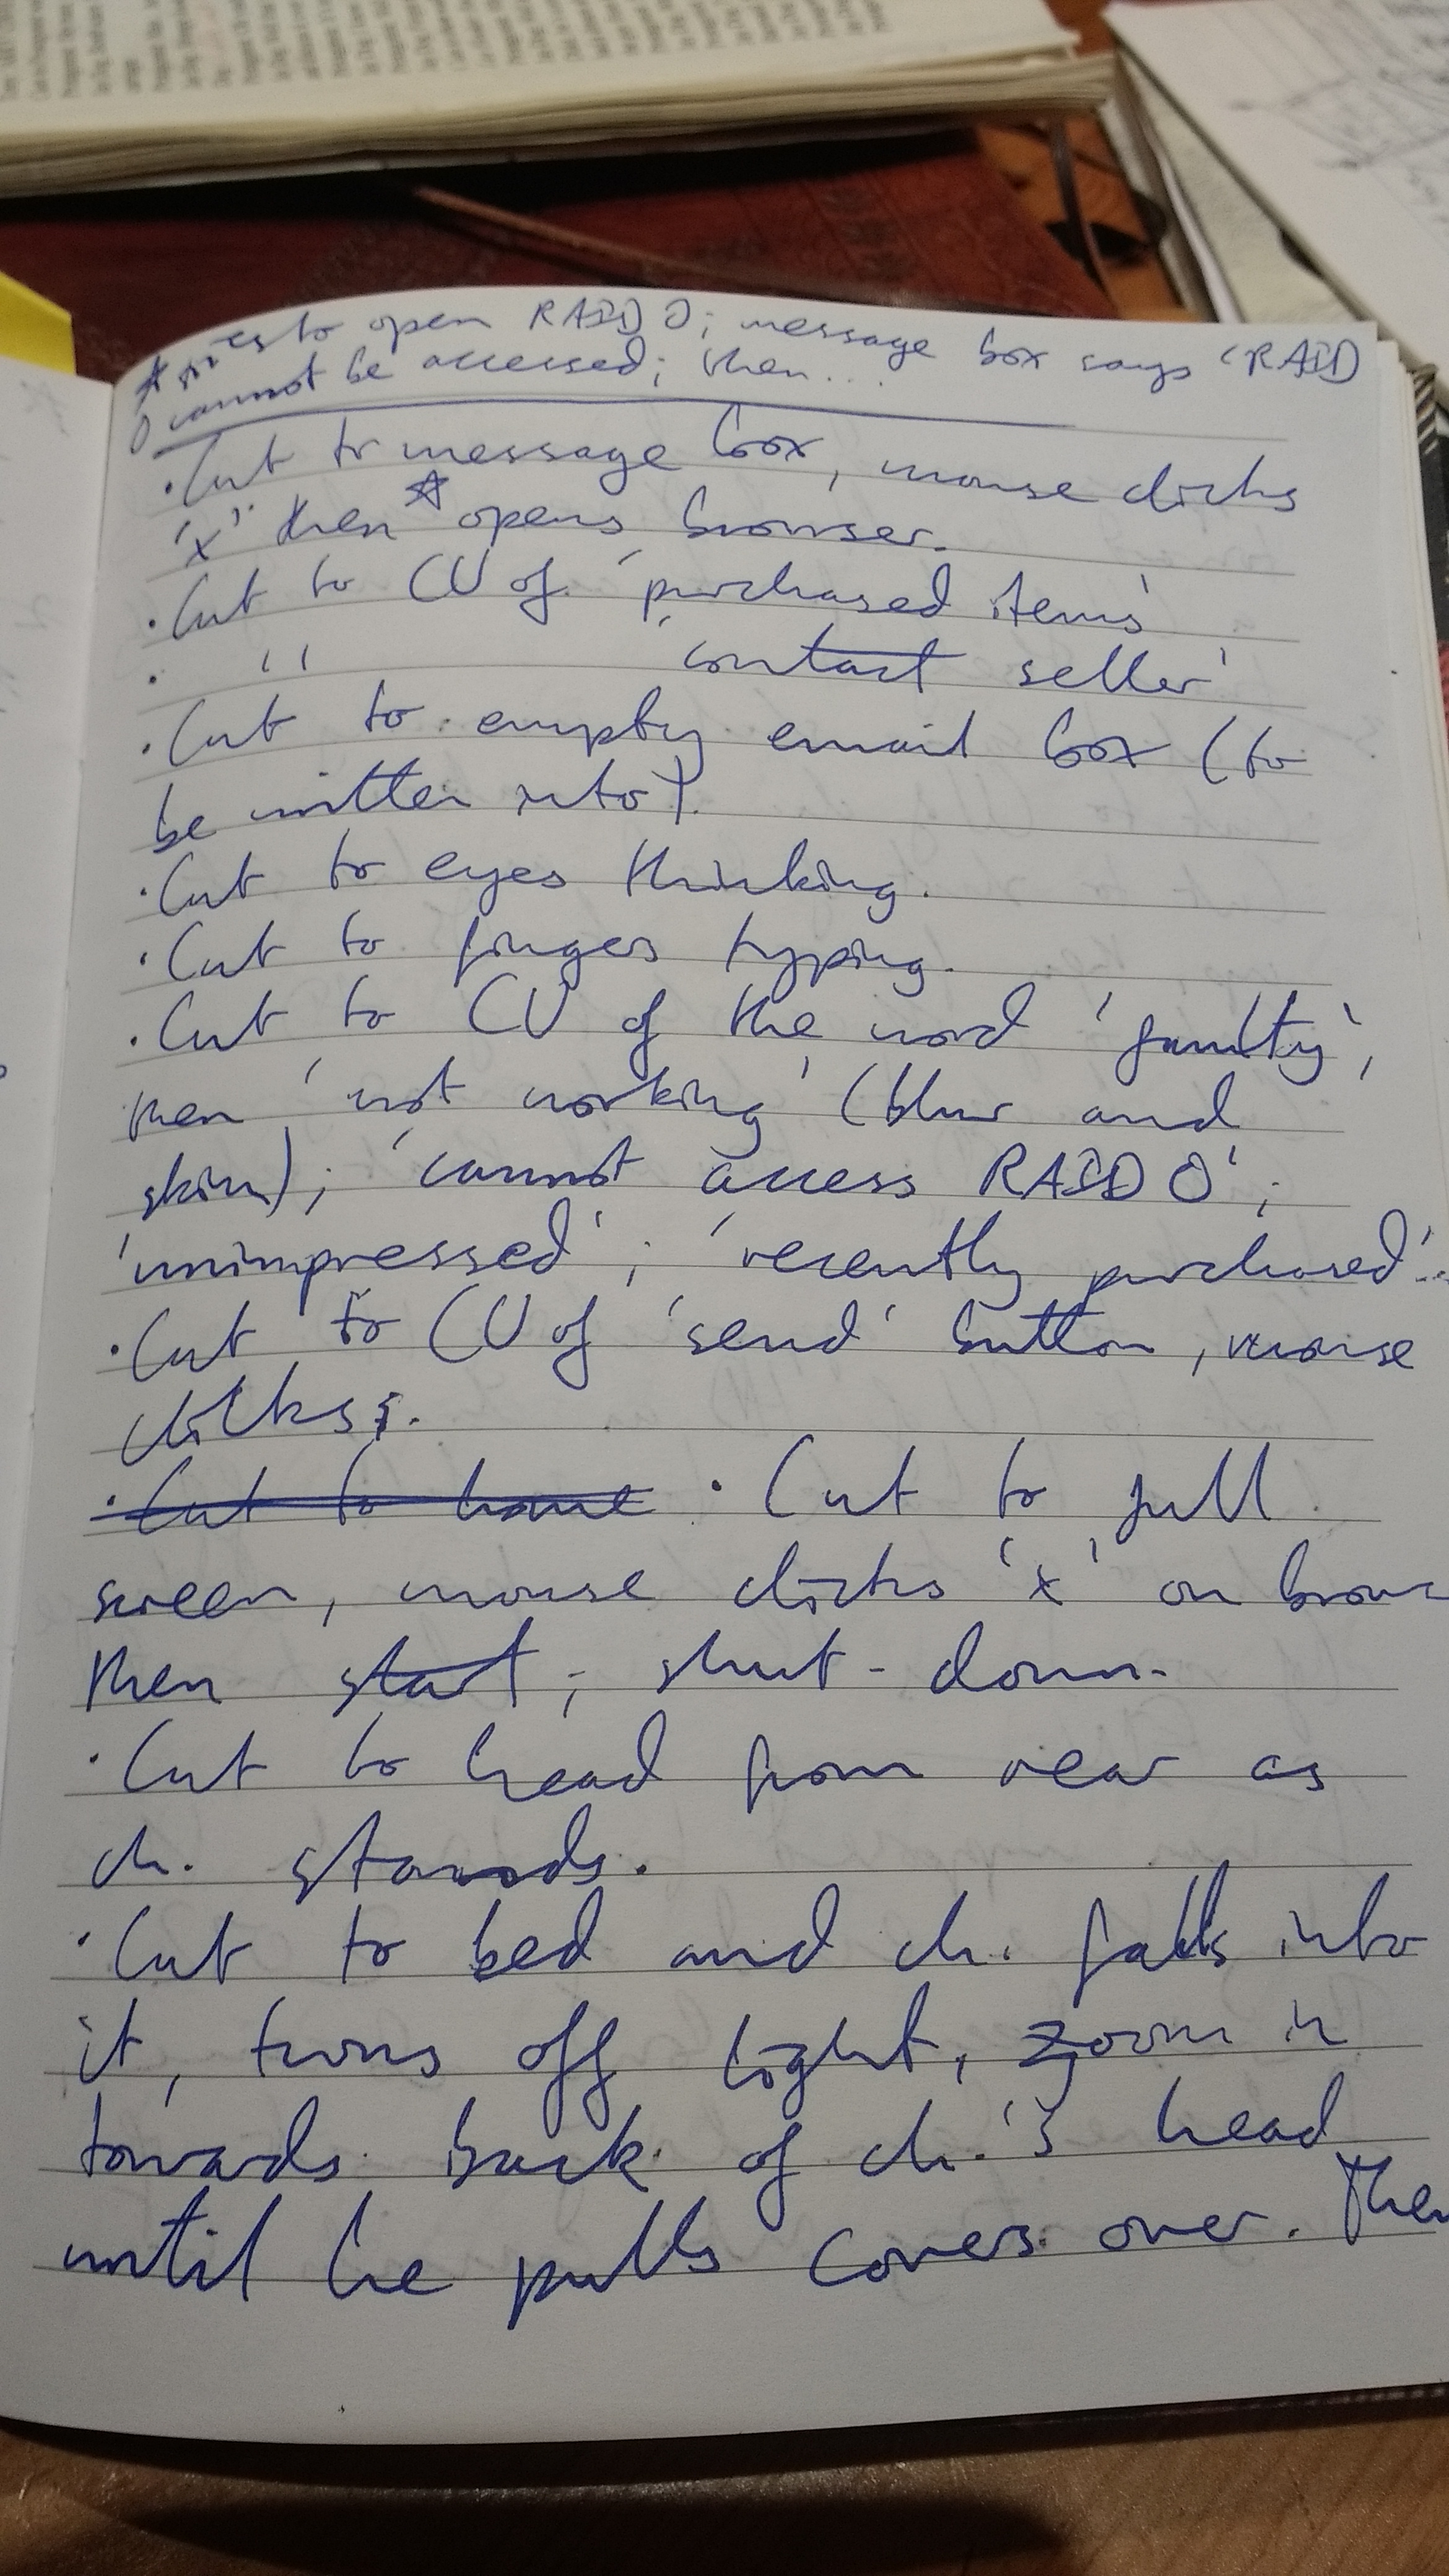 ☆ tries to open RAID 0; message box says 'RAID
0 cannot be accessed; then...
· Cut to message box, mouse clicks
'x' then ☆ opens browser.
· Cut to CU of 'purchased items'
· " 'contact seller'
· Cut to empty email box (to
be written into).
· Cut to eyes thinking.
· Cut to fingers typing.
· Cut to CU of the word 'faulty',
then 'not working' (blur and
skim); 'cannot access RAID 0';
'unimpressed'; 'recently purchased'...
· Cut to CU of 'send' button, mouse
clicks.
· Cut to · Cut to full
screen, mouse clicks 'x' on brow
then start, shut-down.
· Cut to head from rear as
ch. stands.
· Cut to bed and ch. falls into
it, turns off light, zoom in
towards back of ch.'s head
until he pulls covers over. Then